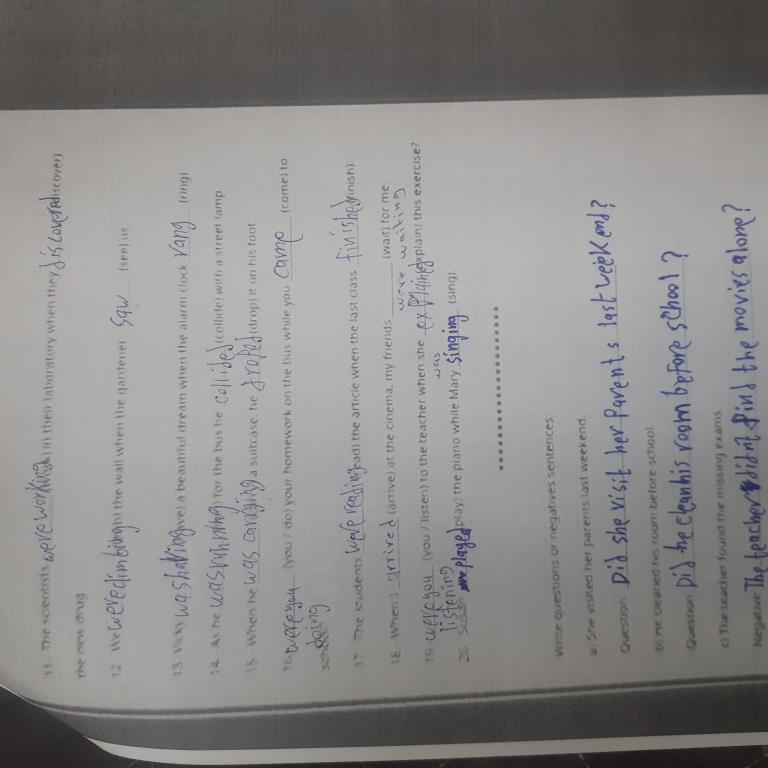 11. The scientists were working (work) in their laboratory when they discovered (discover)
the new drug
12. We were climbing (climb) the wall when the gardener saw (see) us.
13. Vicky was having (have) a beautiful dream when the alarm clock rang (ring)
14. As he was running (run) for the bus he collided (collide) with a street lamp
15. When he was carrying a suitcase, he droped (drop) it on his foot
16. were you doing (you / do) your homework on the bus while you came (come) to
school
17. The students were reading (read) the article when the last class finished (finish)
18. When I arrived (arrive) at the cinema, my friends were waiting (wait) for me.
19. were you listening (you / listen) to the teacher when she explained (explain) this exercise?
20. Susan played (play) the piano while Mary was singing (sing).
Write questions or negatives sentences:
a) She visited her parents last weekend.
Question: Did she visit her parents last week end?
b) He cleaned his room before school.
Question: Did he clean his room before school?
c) The teacher found the missing exams
Negative: The teacher didnt find the movies alone?